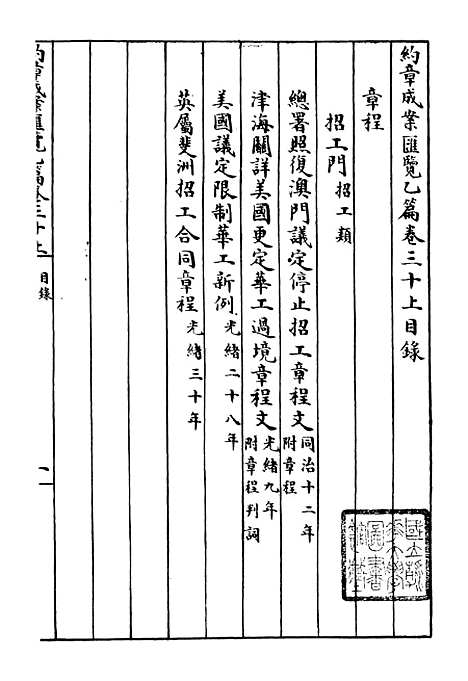 約章成案匯覽乙篇卷三十上目錄
章程
招工門 招工類
總署照復澳門議定停止招工章程文 同治十二年 附章程
津海關詳美國更定華工過境章程文 光緒九年 附章程判詞
美國議定限制華工新例 光緒二十八年
英屬斐洲招工合同章程 光緒三十年
目錄
一